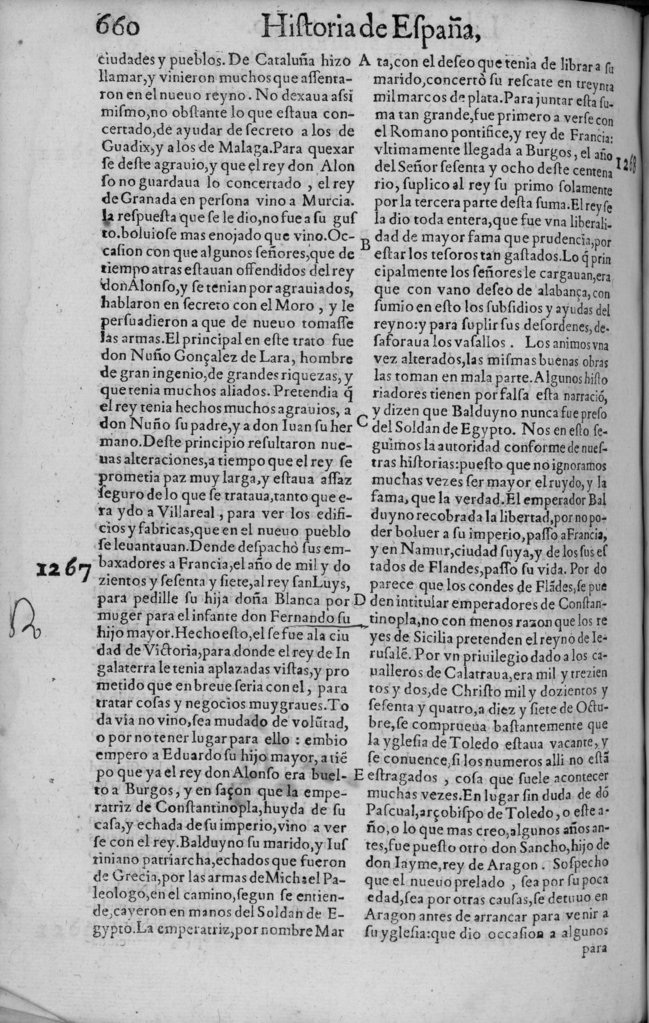 660 Historia de España,
ciudades y pueblos. De Cataluña hizo
llamar,y vinieron muchos que assenta-
ron en el nueuo reyno. No dexaua assi
mismo,no obstante lo que estaua con-
certado,de ayudar de secreto a los de
Guadix,y a los de Malaga.Para quexar
se deste agrauio,y que el rey don Alon
so no guardaua lo concertado , el rey
de Granada en persona vino a Murcia.
la respuesta que se le dio,no fue a su gus
to.boluiose mas enojado que vino.Oc-
casion con que algunos señores,que de
tiempo atras estauan offendidos del rey
don Alonso,y se tenian por agrauiados,
hablaron en secreto con el Moro , y le
persuadieron a que de nueuo tomasse
las armas.El principal en este trato fue
don Nuño Gonçalez de Lara, hombre
de gran ingenio,de grandes riquezas, y
que tenia muchos aliados. Pretendia q̃
el rey tenia hechos muchos agrauios, a
don Nuño su padre,y a don Iuan su her
mano.Deste principio resultaron nue-
uas alteraciones,a tiempo que el rey se
prometia paz muy larga,y estaua assaz
seguro de lo que se trataua,tanto que e-
ra ydo a Villareal , para ver los edifi-
cios y fabricas,que en el nueuo pueblo
se leuantauan.Dende despachò sus em-
1267
baxadores a Francia,el año de mil y do
zientos y sesenta y siete,al rey san Luys,
para pedille su hija doña Blanca por
muger para el infante don Fernando su
hijo mayor.Hecho esto,el se fue a la ciu
dad de Victoria,para donde el rey de In
galaterra le tenia aplazadas vistas,y pro
metido que en breue seria con el, para
tratar cosas y negocios muy graues.To
da via no vino,sea mudado de volũtad,
o por no tener lugar para ello : embio
empero a Eduardo su hijo mayor, a tiẽ
po que ya el rey don Alonso era buel-
to a Burgos, y en saçon que la empe-
ratriz de Constantinopla,huyda de su
casa,y echada de su imperio,vino a ver
se con el rey.Balduyno su marido,y Ius
tiniano patriarcha,echados que fueron
de Grecia,por las armas de Michael Pa-
leologo,en el camino,segun se entien-
de,cayeron en manos del Soldan de E-
gypto.La emperatriz,por nombre Mar
A
B
C
D
E
ta,con el deseo que tenia de librar a su
marido,concertò su rescate en treynta
mil marcos de plata.Para juntar esta su-
ma tan grande,fue primero a verse con
el Romano pontifice,y rey de Francia:
vltimamente llegada a Burgos, el año
1268
del Señor sesenta y ocho deste centena
rio, suplico al rey su primo solamente
por la tercera parte desta suma.El rey se
la dio toda entera,que fue vna liberali-
dad de mayor fama que prudencia,por
estar los tesoros tan gastados.Lo q̃ prin
cipalmente los señores le cargauan,era
que con vano deseo de alabança, con
sumio en esto los subsidios y ayudas del
reyno:y para suplir sus desordenes, de-
saforaua los vasallos . Los animos vna
vez alterados,las mismas buenas obras
las toman en mala parte.Algunos histo
riadores tienen por falsa esta narraciõ,
y dizen que Balduyno nunca fue preso
del Soldan de Egypto. Nos en esto se-
guimos la autoridad conforme de nues-
tras historias:puesto que no ignoramos
muchas vezes ser mayor el ruydo, y la
fama, que la verdad.El emperador Bal
duyno recobrada la libertad,por no po-
der boluer a su imperio, passo a Francia,
y en Namur,ciudad suya,y de los sus es
tados de Flandes,passo su vida. Por do
parece que los condes de Flãdes,se pue
den intitular emperadores de Constan-
tinopla,no con menos razon que los re
yes de Sicilia pretenden el reyno de Ie-
rusalẽ. Por vn priuilegio dado a los ca-
ualleros de Calatraua,era mil y trezien
tos y dos,de Christo mil y dozientos y
sesenta y quatro,a diez y siete de Octu-
bre, se comprueua bastantemente que
la yglesia de Toledo estaua vacante, y
se conuence,si los numeros alli no estã
estragados , cosa que suele acontecer
muchas vezes.En lugar sin duda de dõ
Pascual,arçobispo de Toledo, o este a-
ño,o lo que mas creo,algunos años an-
tes,fue puesto otro don Sancho,hijo de
don Iayme,rey de Aragon . Sospecho
que el nueuo prelado , sea por su poca
edad,sea por otras causas,se detuuo en
Aragon antes de arrancar para venir a
su yglesia:que dio occasion a algunos
para